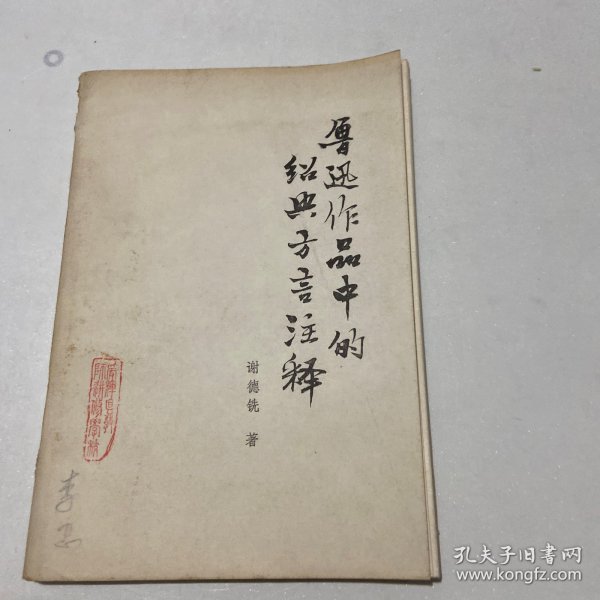 鲁迅作品中的
绍兴方言注释
谢德铣 著
孔夫子旧书网
www.kongfz.com